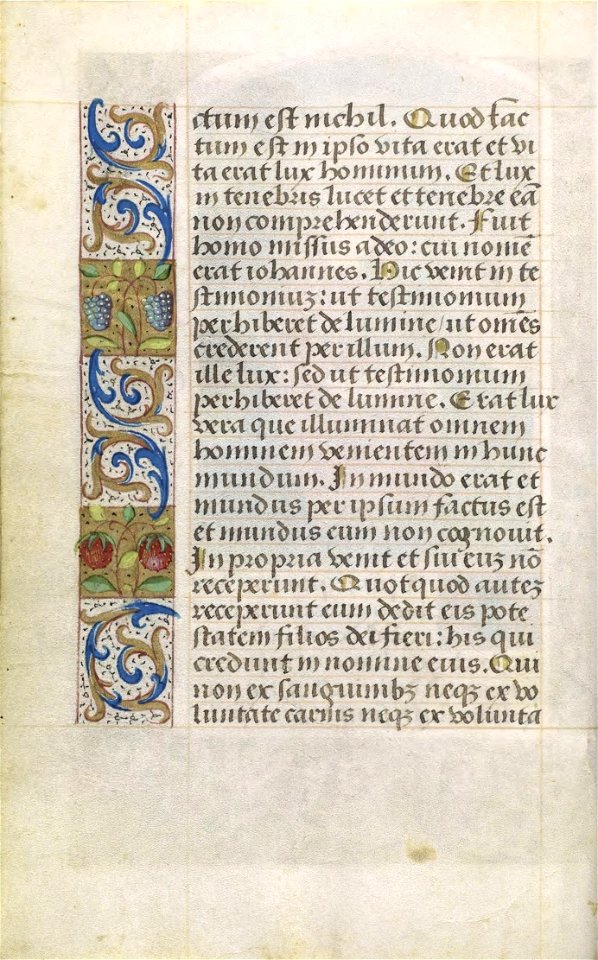 ctum est nichil. Quod fac
tum est in ipso vita erat et vi
ta erat lux hominum. Et lux
in tenebris lucet et tenebre eā
non comprehenderunt. Fuit
homo missus a deo: cui nomē
erat iohannes. Hic venit in te
stimoniuz: ut testimonium
perhiberet de lumine / ut omēs
crederent per illum. Non erat
ille lux: sed ut testimonium
perhiberet de lumine. Erat lux
vera que illuminat omnem
hominem venientem in hunc
mundum. In mundo erat et
mundus per ipsum factus est
et mundus eum non cognovit.
In propria venit et sui euz nō
receperunt. Quotquod autez
receperunt eum dedit eis pote
statem filios dei fieri: his qui
credunt in nomine eius. Qui
non ex sanguinibꝫ neqꝫ ex vo
luntate carnis neqꝫ ex volunta